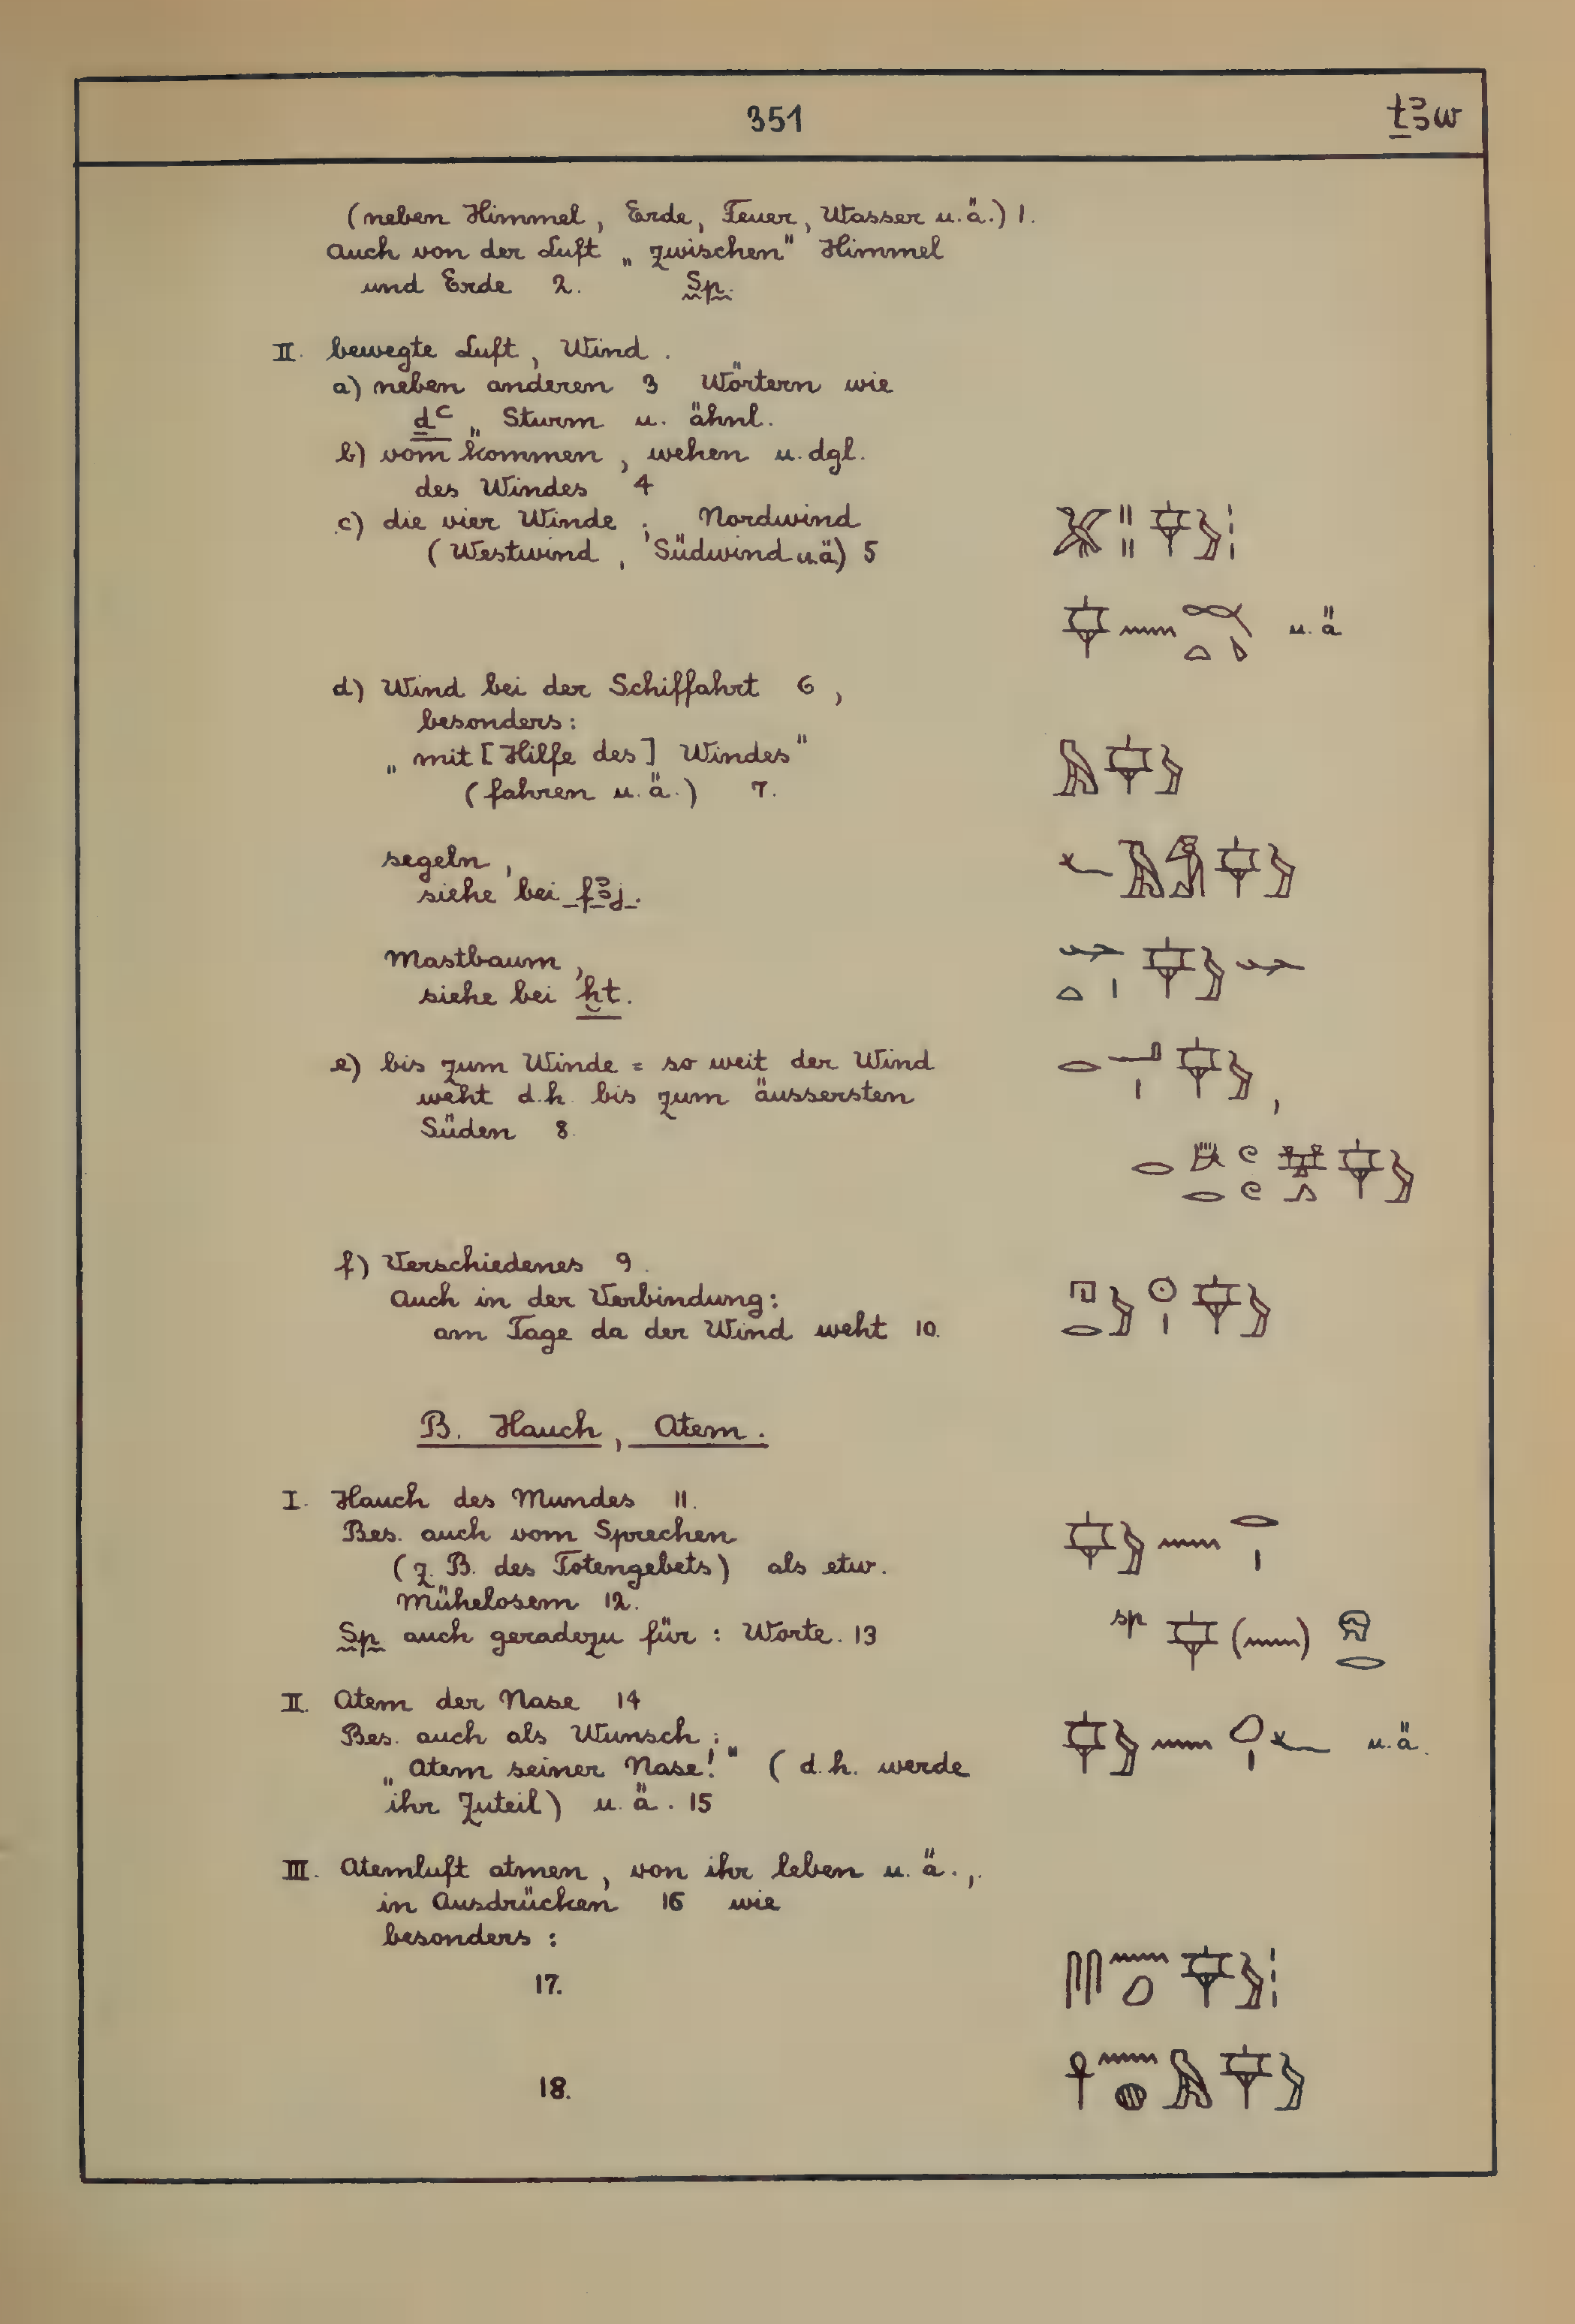 351
ṯꜣw
(neben Himmel, Erde, Feuer, Wasser u.ä.) 1.
Auch von der Luft „zwischen" Himmel
und Erde 2. Sp.
II. bewegte Luft, Wind.
a) neben anderen 3 Wörtern wie
ḏꜥ „Sturm u. ähnl.
b) vom Kommen, wehen u. dgl.
des Windes 4
c) die vier Winde; Nordwind
(Westwind, Südwind u.ä) 5
u. ä
d) Wind bei der Schiffahrt 6,
besonders:
„mit [Hilfe des] Windes"
(fahren u. ä.) 7.
segeln,
siehe bei fꜣj.
Mastbaum,
siehe bei ḫt.
e) bis zum Winde = so weit der Wind
weht d.h. bis zum äussersten
Süden 8.
f) Verschiedenes 9.
Auch in der Verbindung:
am Tage da der Wind weht 10.
B. Hauch, Atem.
I. Hauch des Mundes 11.
Bes. auch vom Sprechen
(z. B. des Totengebets) als etw.
Mühelosem 12.
Sp auch geradezu für: Worte. 13
sp ( )
II. Atem der Nase 14
Bes. auch als Wunsch:
„Atem seiner Nase!" (d.h. werde
ihr Zuteil) u. ä. 15
u. ä.
III. Atemluft atmen, von ihr leben u. ä.,
in Ausdrücken 16 wie
besonders:
17.
18.